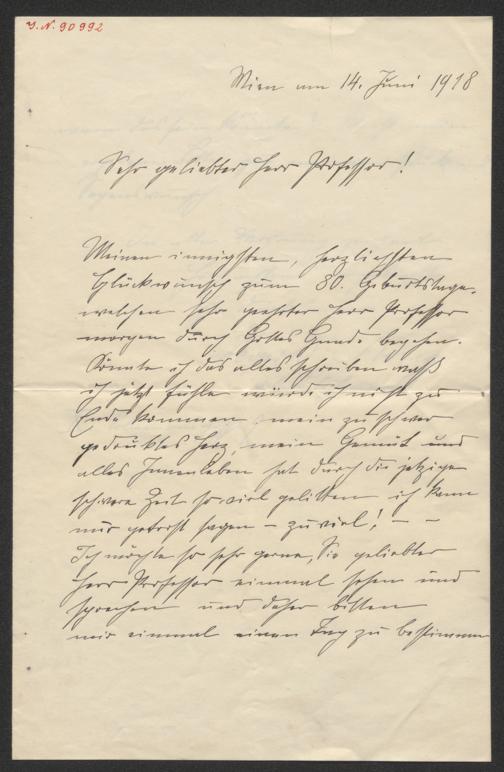 J.N. 90992
Wien am 14. Juni 1918
Sehr geliebter Herr Professor!
Meinen innigsten, herzlichsten
Glückwunsch zum 80. Geburtstage,
welchen sehr geehrter Herr Professor
morgen durch Gottes Gnade begehen.
Könnte ich das alles schreiben was
ich jetzt fühle würde ich nicht zu
Ende kommen, mein zu schwer
gedrücktes Herz, mein Gemüt und
alles Innenleben hat durch die jetzige
schwere Zeit so viel gelitten ich kann
nur getrost sagen – zu viel! – –
Ich möchte so sehr gerne, Sie geliebter
Herr Professor einmal sehen und
sprechen und daher bitten
mir einmal einen Tag zu bestimmen